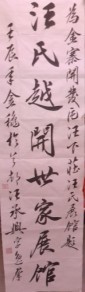 為金寨開發區汪下莊汪氏展館題
汪氏越開世家展館
壬辰年金穐於
汪永興字